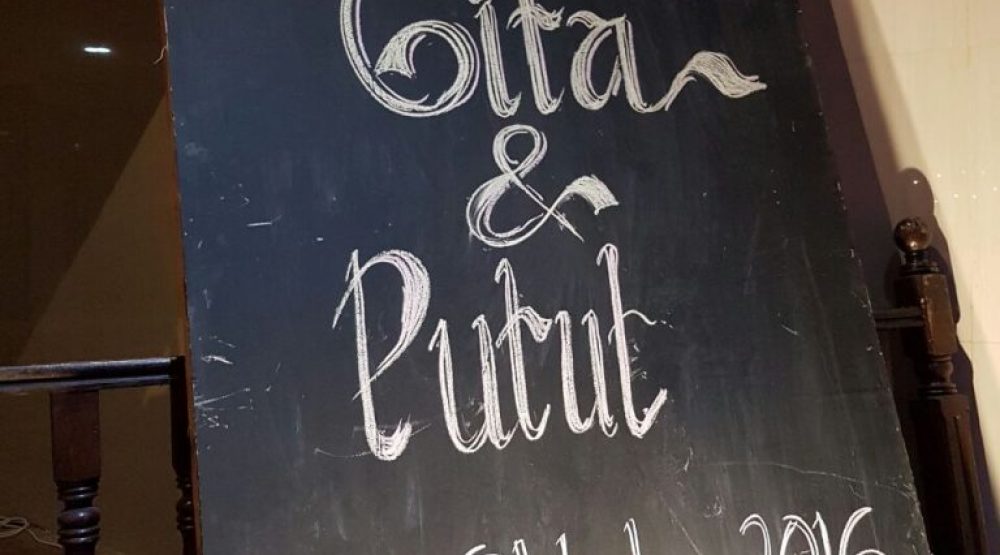 Gita
&
Putut
2016